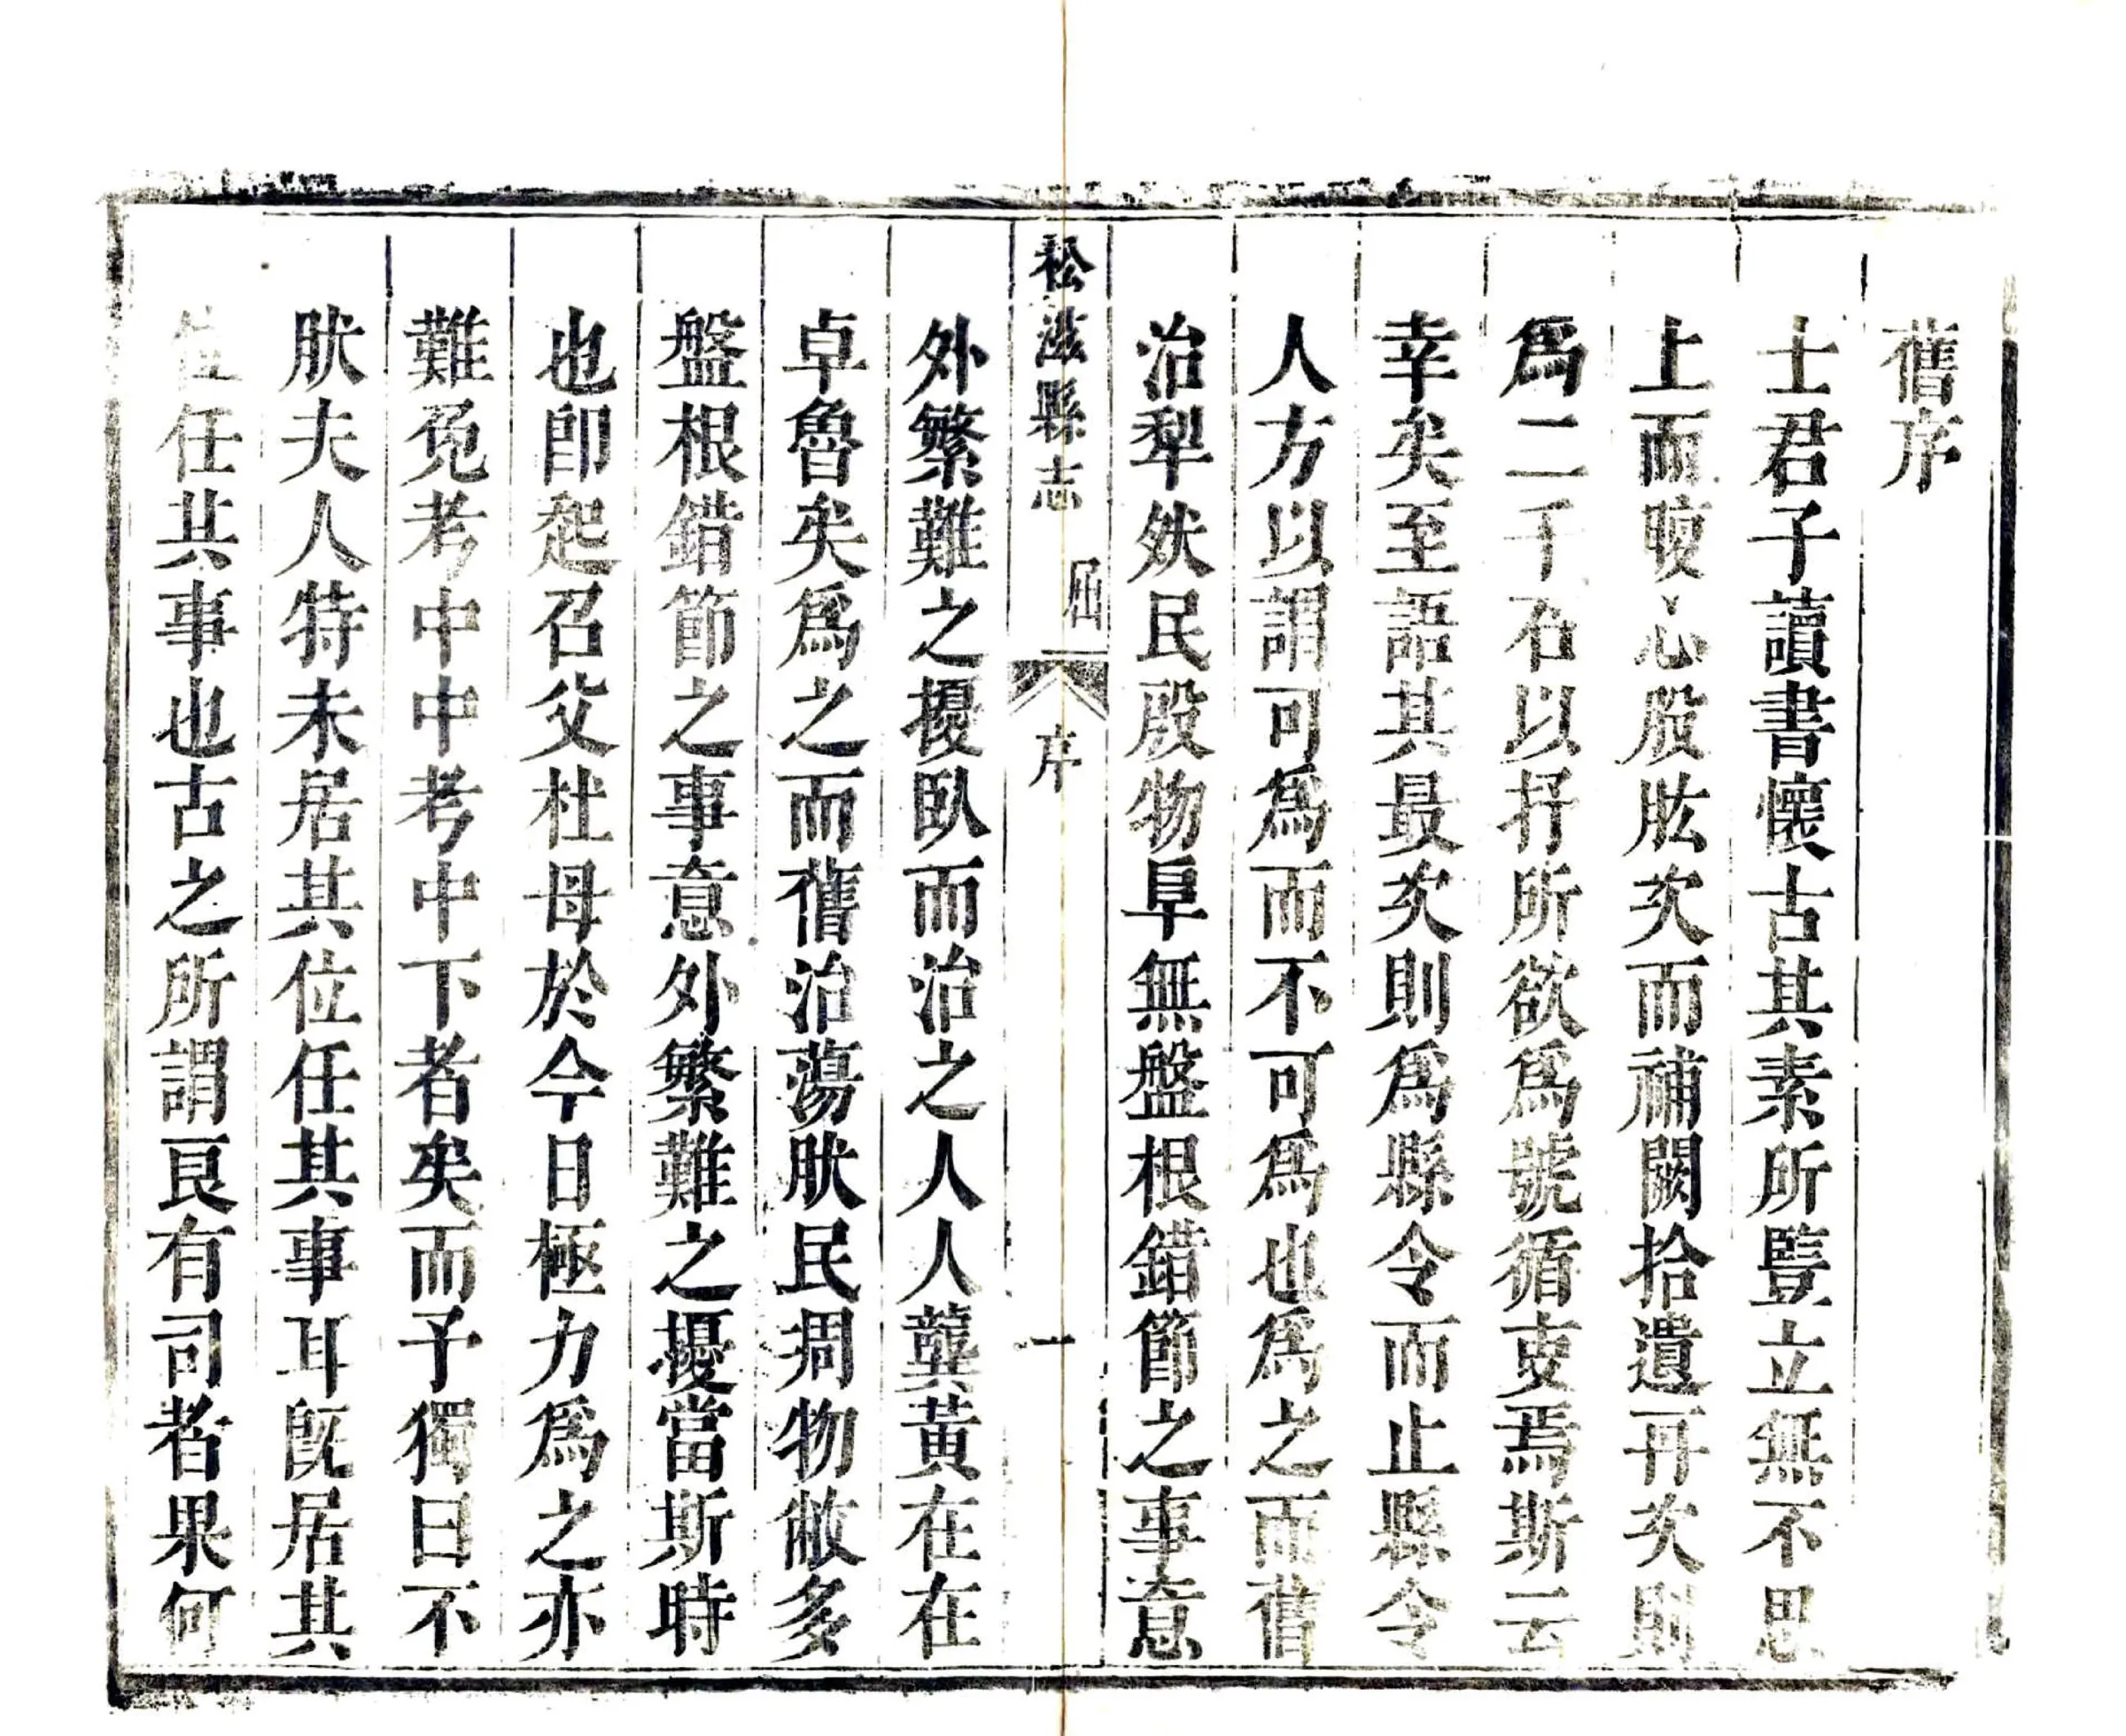 舊序
士君子讀書懷古其素所豎立無不思
上而腹心股肱次而補闕拾遺再次則
爲二千石以抒所欲爲號循吏焉斯云
幸矣至語其最次則爲縣令而止縣令
人方以謂可爲而不可爲也爲之而舊
治犂然民殷物阜無盤根錯節之事意
松滋縣志
屈
序
一
外繁難之擾臥而治之人人龔黃在在
卓魯矣爲之而舊治蕩肰民凋物敝多
盤根錯節之事意外繁難之擾當斯時
也卽起召父杜母於今日極力爲之亦
難免考中中考中下者矣而予獨曰不
肰夫人特未居其位任其事耳旣居其
位任其事也古之所謂良有司者果何